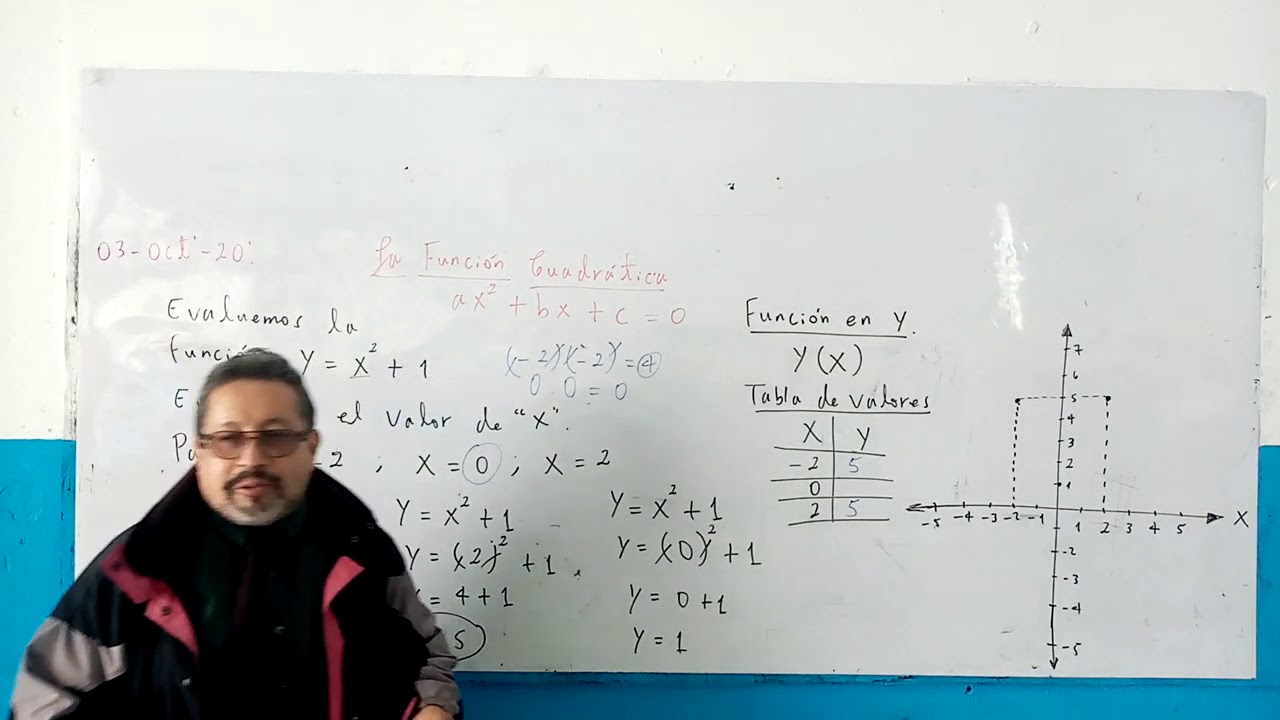 03-Oct-20:
La Función Cuadrática
ax² + bx + c = 0
Evaluemos la
Y = x² + 1
el valor de "x".
-2 ; X = 0 ; X = 2
(-2)(-2) = 4
0 0 = 0
Y = x² + 1
Y = (2)² + 1
= 4 + 1
5
Y = x² + 1
Y = (0)² + 1
Y = 0 + 1
Y = 1
Función en Y.
Y(X)
Tabla de valores
X Y
-2 5
0
2 5
7
6
5
4
3
2
1
-5 -4 -3 -2 -1 1 2 3 4 5 X
-2
-3
-4
-5